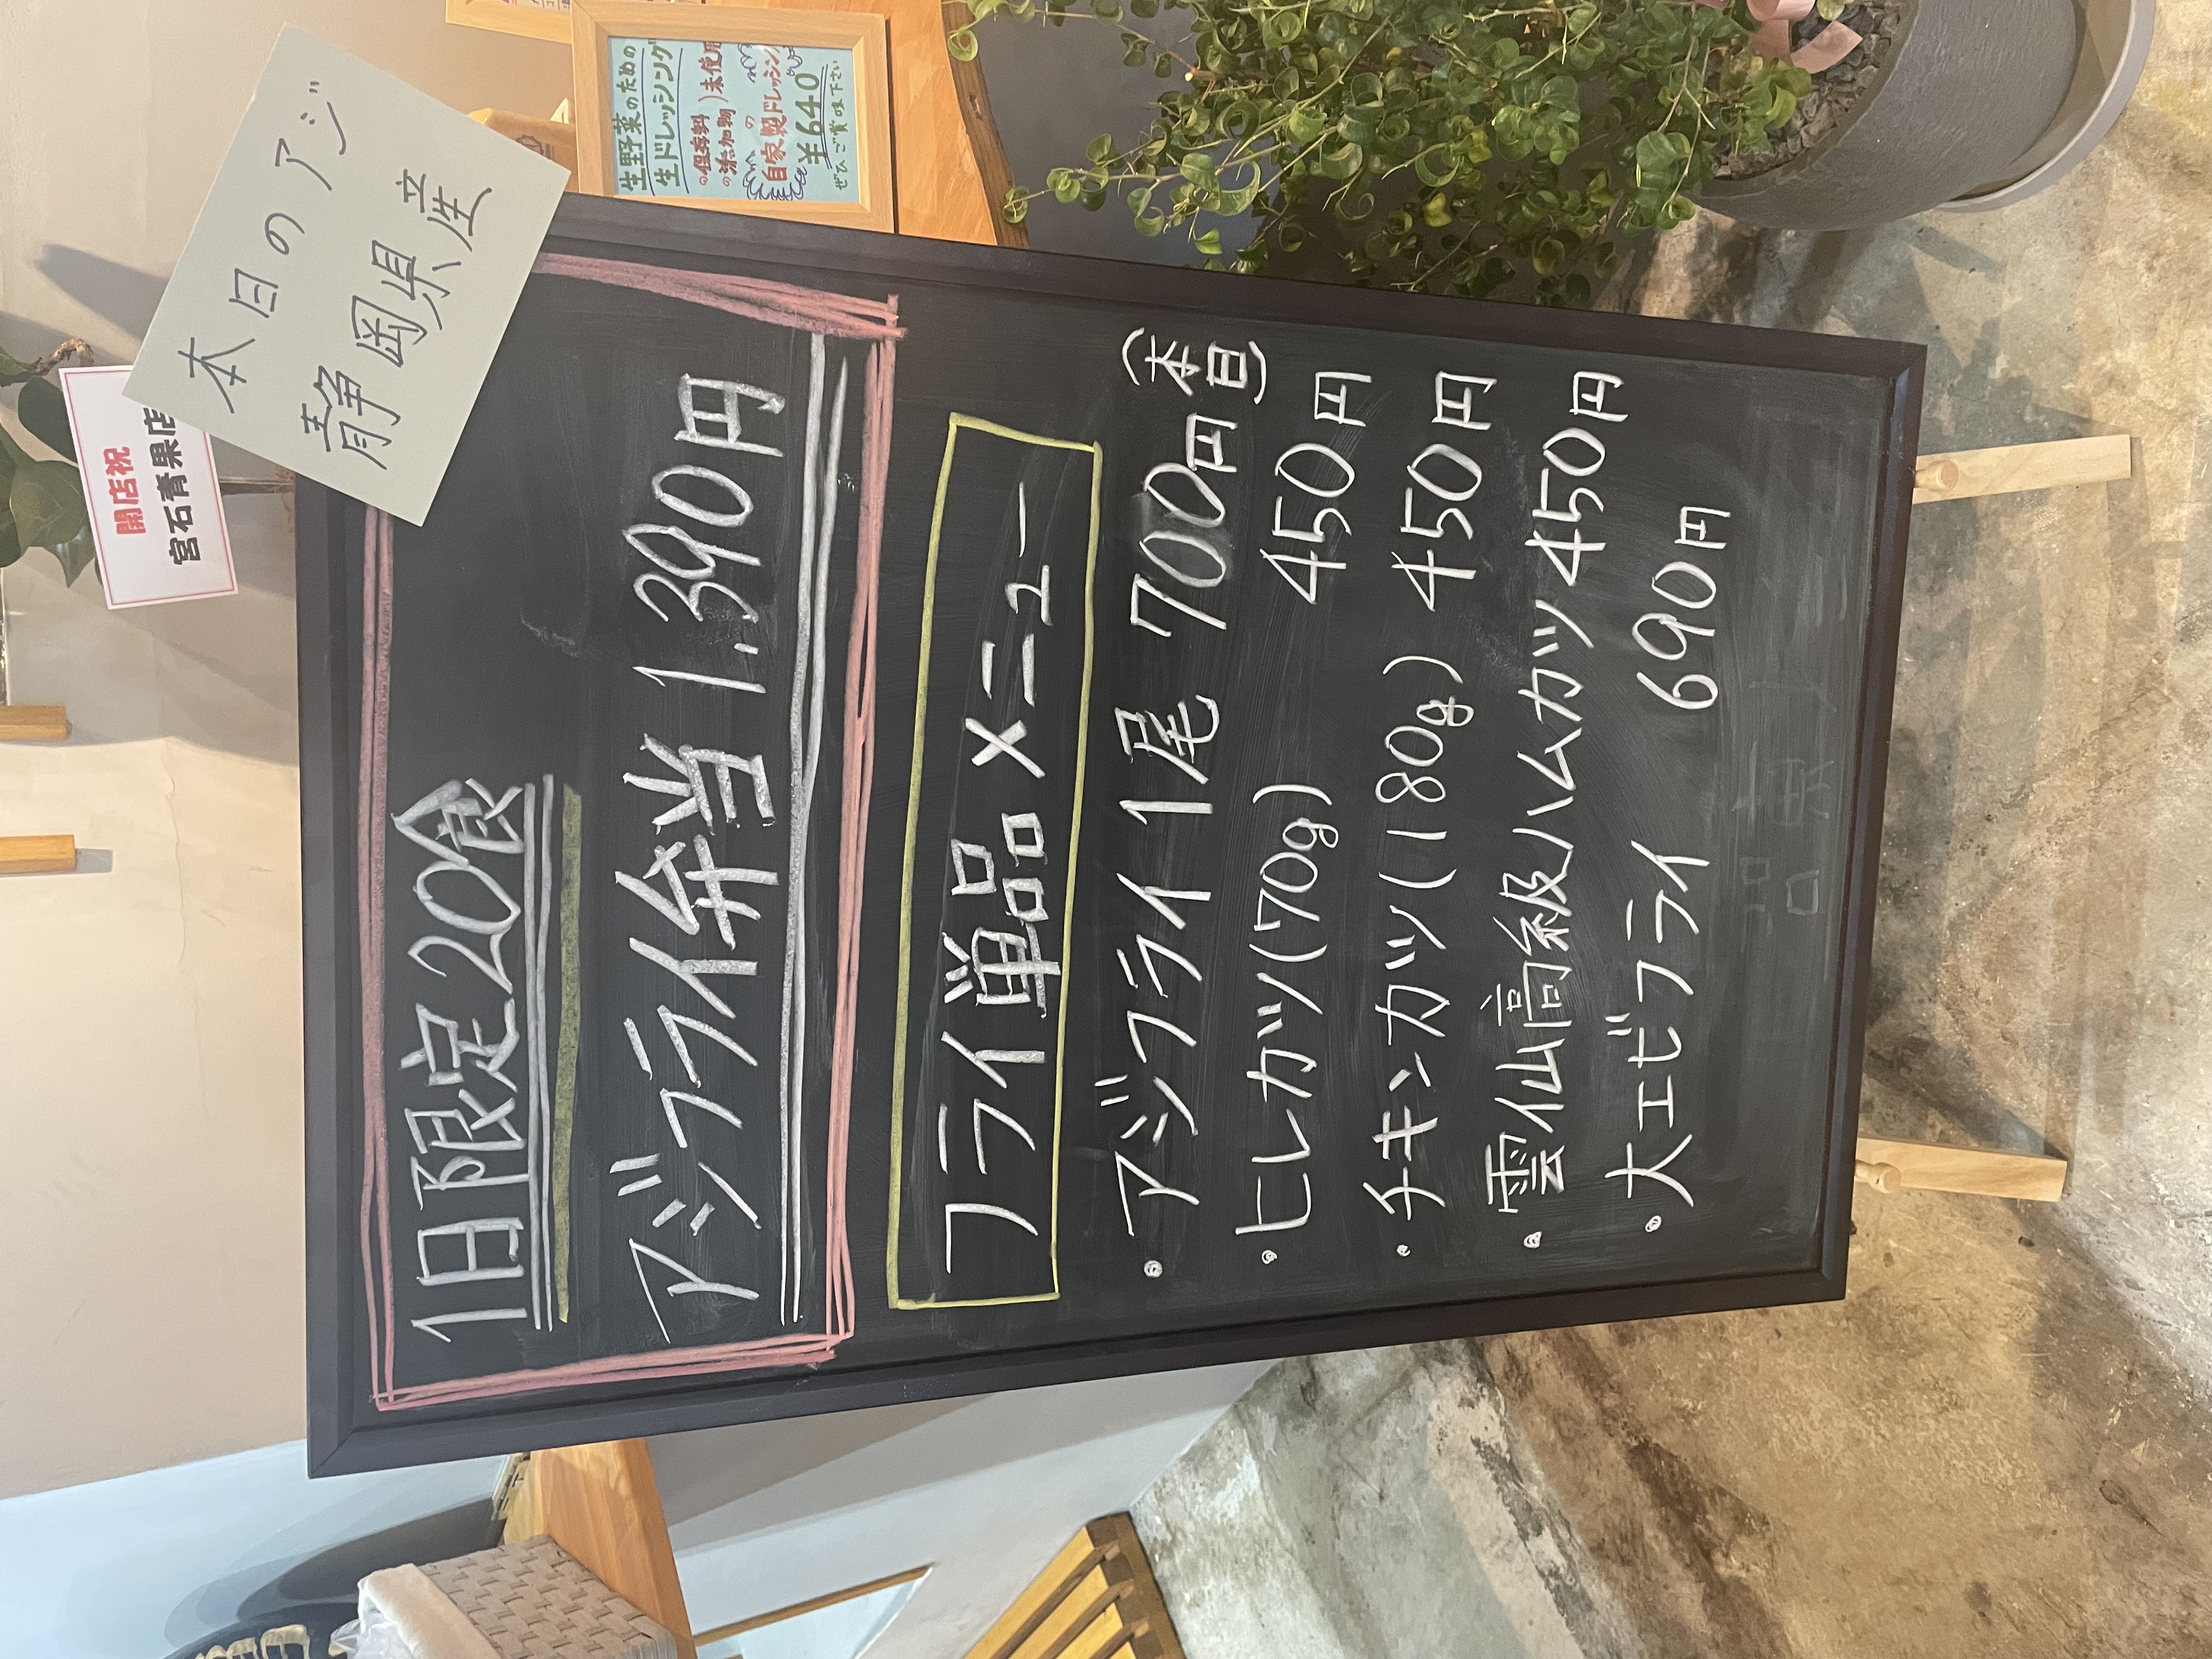 開店祝
宮石青果店
本日のアジ
静岡県産
1日限定20食
アジフライ弁当 1.390円
フライ単品メニュー
・アジフライ1尾 700円(本日)
・ヒレカツ(70g) 450円
・チキンカツ(180g) 450円
・雲仙高級ハムカツ450円
・大エビフライ 690円
生野菜のための
生ドレッシング
の保存料
の添加物)未使用
の
自家製ドレッシン
¥640
ぜひご賞味下さい